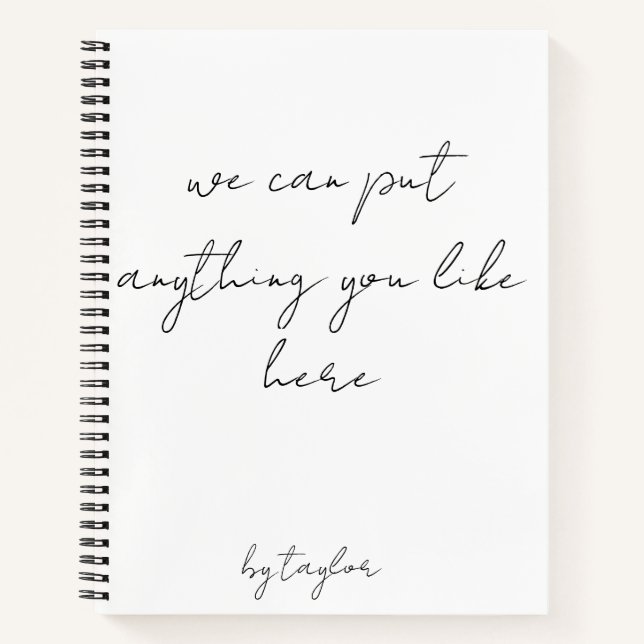 we can put
anything you like
here
by taylor